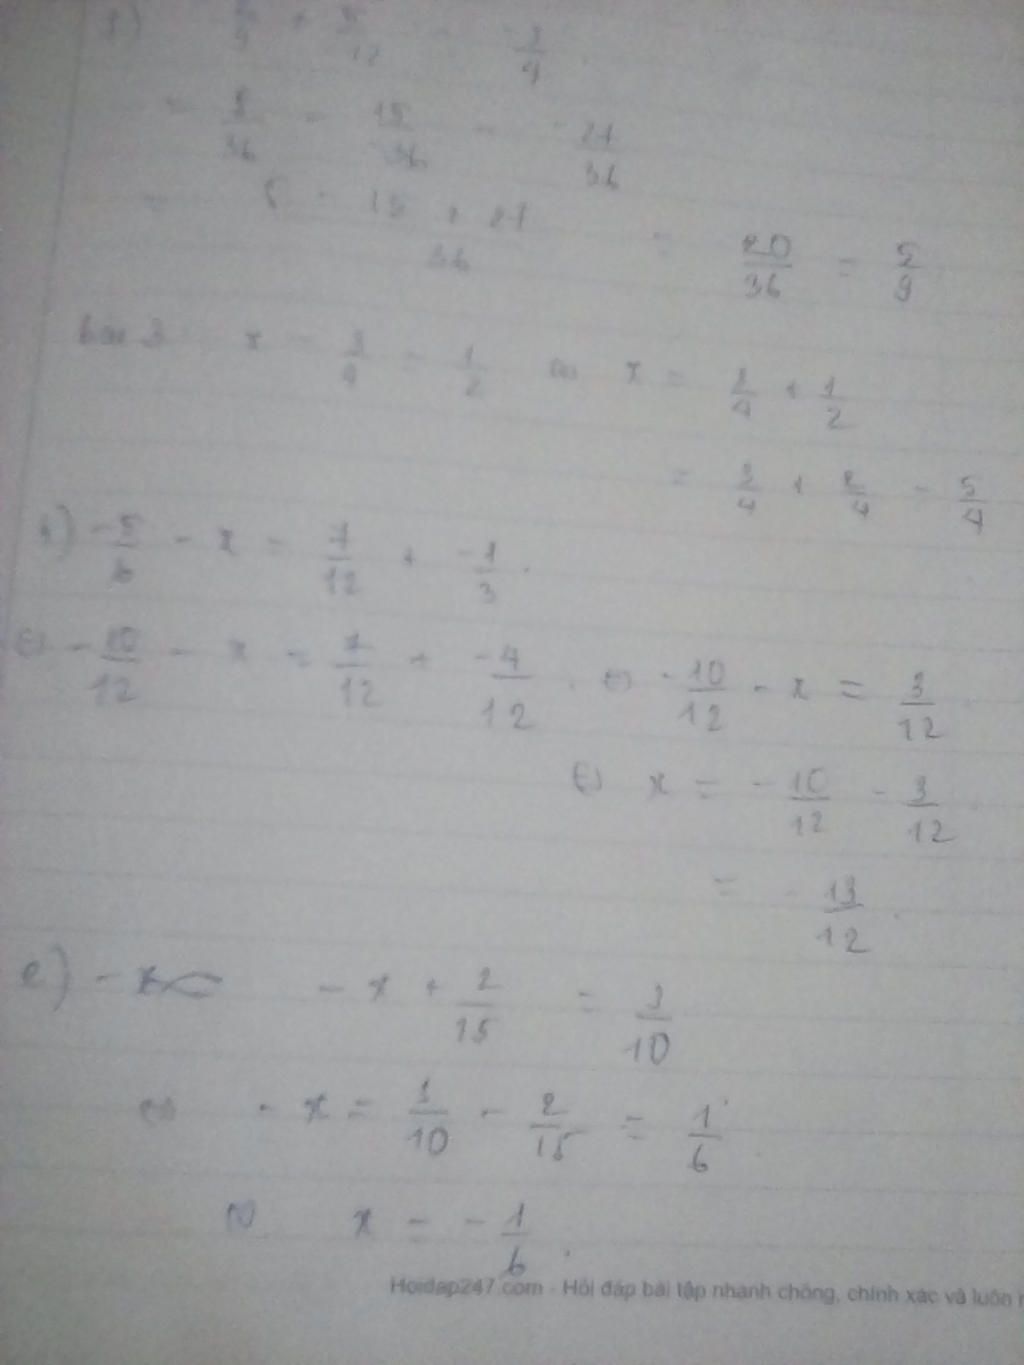 12 4
= 8/36 - 15/36 - -27/36
= 15 + 27 / 36 = 20/36 = 5/9
bài 3 x - 3/4 = 1/2 (=) x = 3/4 + 1/2
= 3/4 + 2/4 = 5/4
-5/6 - x = 7/12 + -1/3.
(=) -10/12 - x = 7/12 + -4/12. (=) -10/12 - x = 3/12.
(=) x = -10/12 - 3/12.
= -13/12.
e) - x - x + 2/15 = 3/10
(=) - x = 3/10 - 2/15 = 1/6.
(=) x = - 1/6.
Hoidap247.com - Hỏi đáp bài tập nhanh chóng, chính xác và luôn